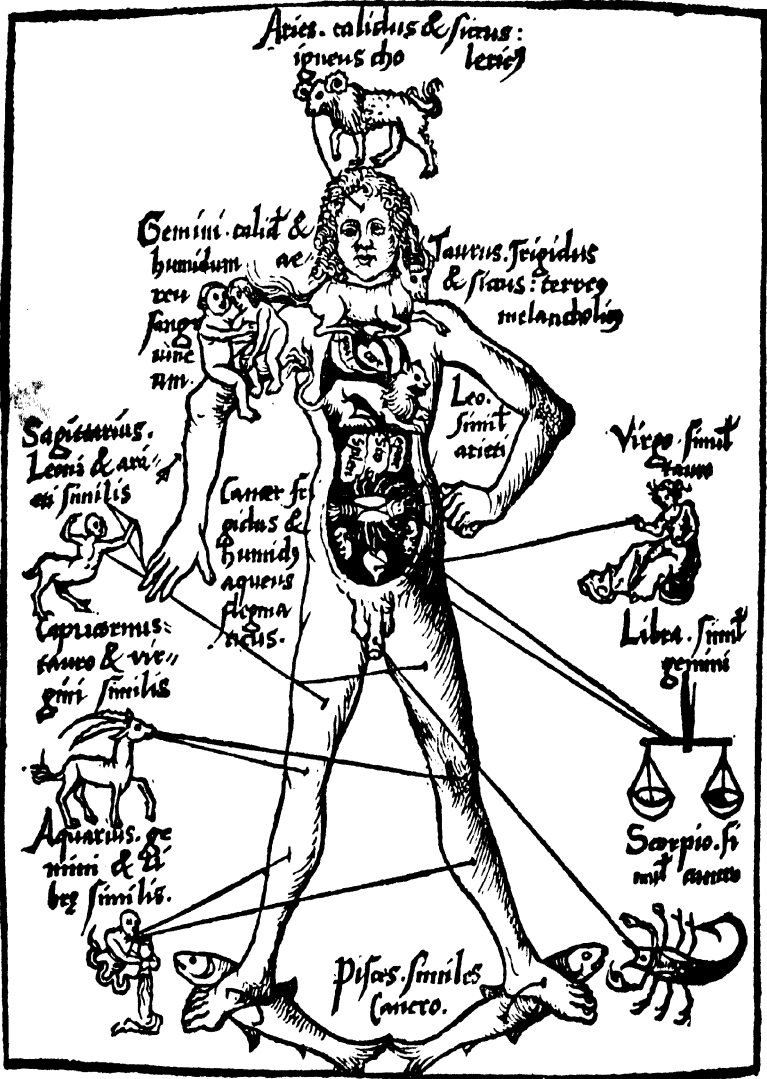 Aries. calidus & siccus:
igneus cho lericꝰ
Gemini. calidꝰ &
humidum ae
reu
sangu
uine
um.
Taurus. frigidus
& siccus: terreꝰ
melancholicꝰ
Leo.
simil
arieti
Sagittarius.
Leoni & ari-
eti similis
Virgo. simil
tauro
Cancer fri
gidus &
humidꝰ
aqueus
flegma
ticus.
Splen
Capricornus:
tauro & vir-
gini similis
Libra. simil
gemini
Aquarius. ge
mini & li
brę similis.
Scorpio. si
mil cancro
Pisces. similes
Cancro.